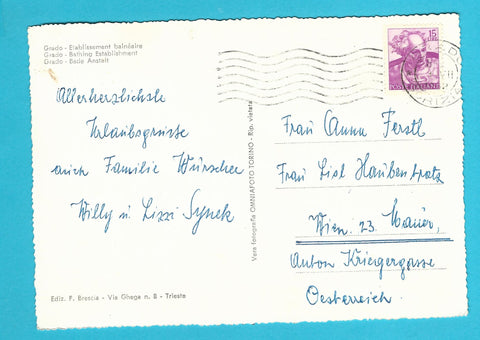 Grado - Etablissement balnéaire
Grado - Bathing Establishment
Grado - Bade Anstalt
Allerherzlichste
Urlaubsgrüsse
auch Familie
Willy u. Lizzi Synek
Ediz. F. Brescia - Via Ghega n. 8 - Trieste
Vera fotografia OMNIAFOTO TORINO - Rip. vietata
15
POSTE ITALIANE
Frau Anna Ferstl
Frau Lisl
Wien. 23. Mauer,
Anton Kriegergasse
Oesterreich